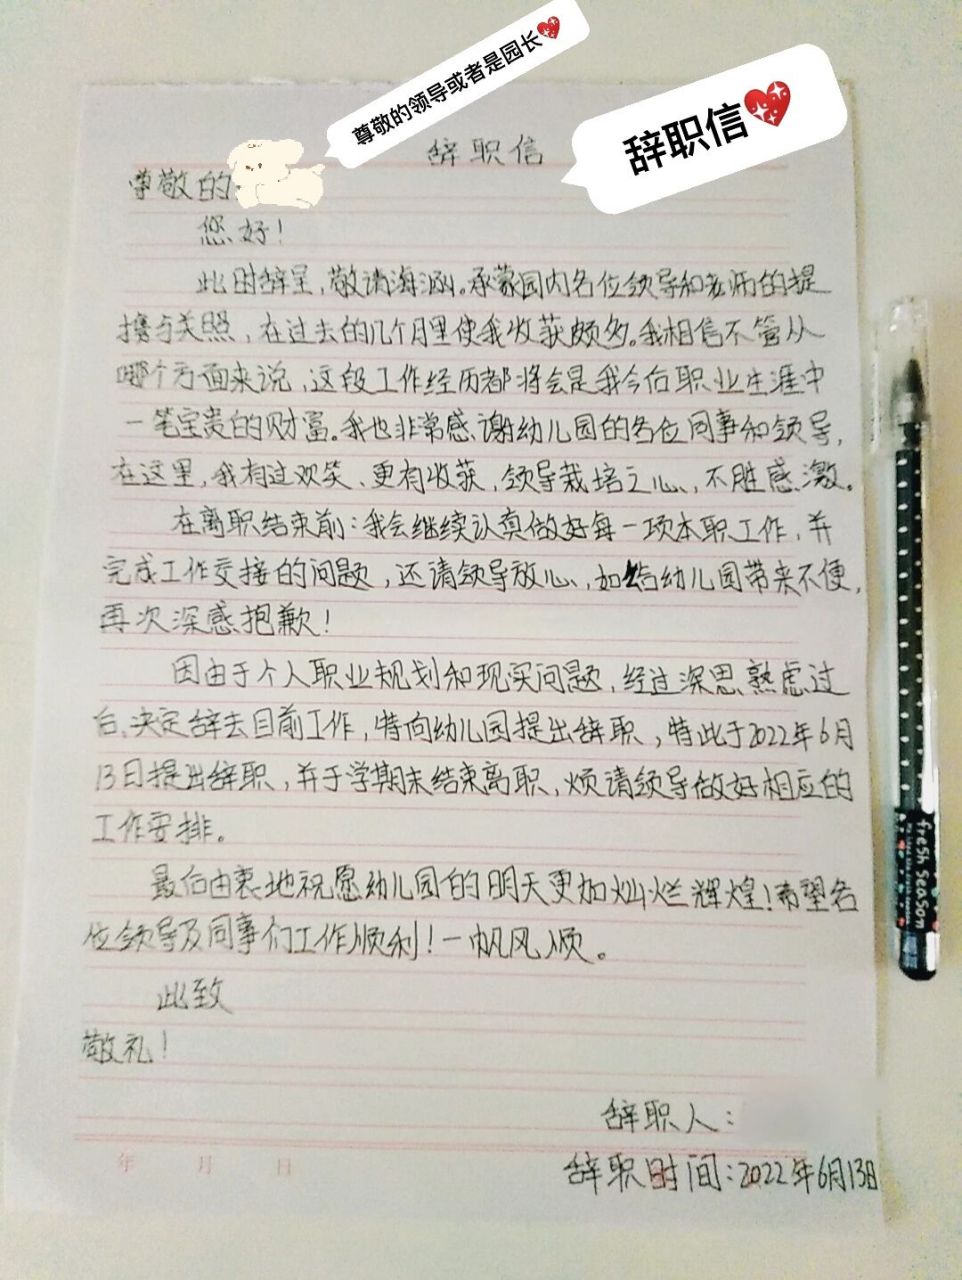 尊敬的领导或者是园长
辞职信
辞职信
尊敬的
您好！
此时辞呈，敬请海涵。承蒙园内各位领导和老师的提
携与关照，在过去的几个月里使我收获颇多。我相信不管从
哪个方面来说，这段工作经历都将会是我今后职业生涯中
一笔宝贵的财富。我也非常感谢幼儿园的各位同事和领导，
在这里，我有过欢笑、更有收获，领导栽培之心、不胜感激。
在离职结束前：我会继续认真做好每一项本职工作，并
完成工作交接的问题，还请领导放心，如给幼儿园带来不便，
再次深感抱歉！
因由于个人职业规划和现实问题，经过深思熟虑过
后、决定辞去目前工作，特向幼儿园提出辞职，特此于2022年6月
13日提出辞职，并于学期末结束离职，烦请领导做好相应的
工作安排。
最后由衷地祝愿幼儿园的明天更加灿烂辉煌！希望各
位领导及同事们工作顺利！一帆风顺。
此致
敬礼！
辞职人：
年 月 日
辞职时间：2022年6月13日
fresh season